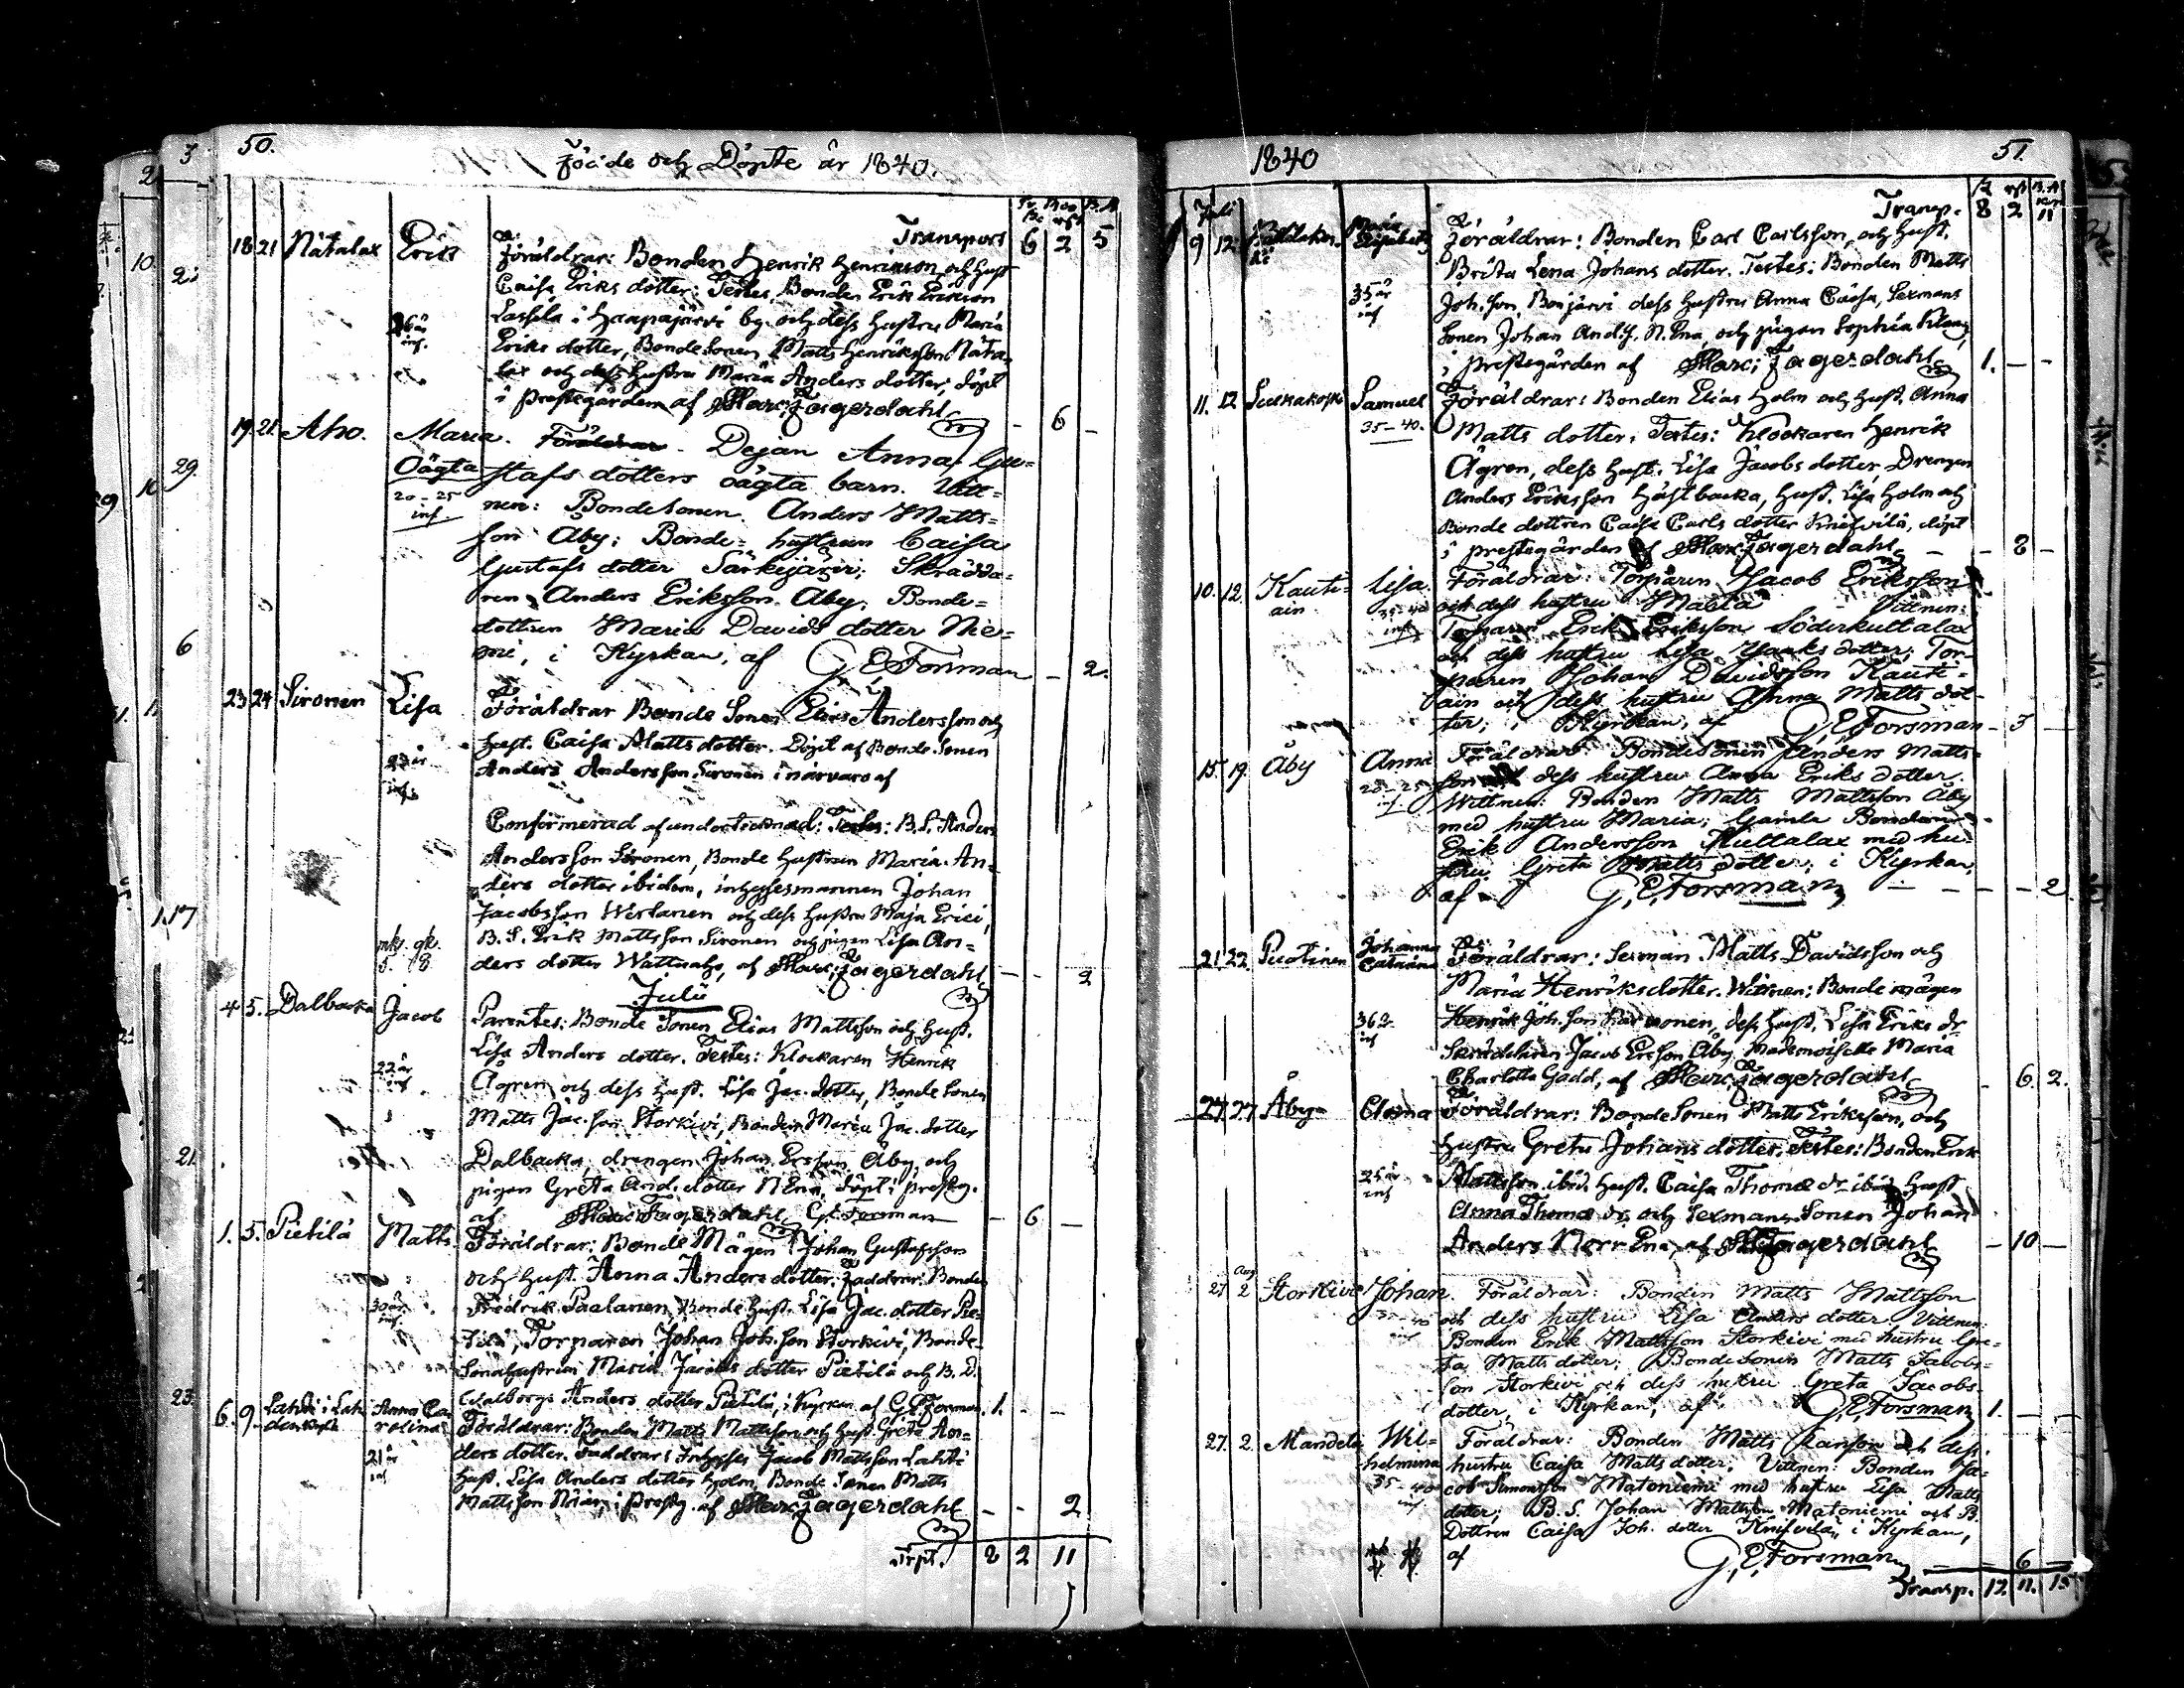 50.
Födde och Döpte år 1840.
Transport 6 2 5
18 21 Nätalax Erik Föräldrar: Bonden Henrik Henrikson och Hust
Caisa Eriks dotter: Testes Bonden Erik Erikson
Lassila i Haapajärvi by. och dess Hustru Maria
26 år inf. Eriks dotter, Bonde Sonen Matts Henriksson Näta-
lax och dess Hustru Maria Anders dotter; döpt
i prestegården af Marc: Fagerdahl - 6 -
19. 21. Aho. Maria. Dejan Anna Gu-
Oägta stafs dotters oägta barn. Vitt-
20-25 inf. nen: Bondesonen Anders Matts-
son Åby; Bonde-hustrun Caisa
Gustafs dotter Särkijärvi; Skrädda-
ren Anders Eriksson Åby; Bonde-
dottren Maria Davids dotter Nie-
mi, i Kyrkan, af G E Forsman - 2.
23 24 Sironen Lisa Föräldrar Bonde Sonen Elias Andersson och
Hust. Caisa Matts dotter. Döpt af Bonde Sonen
Anders Andersson Sironen i närvaro af
Comfirmerad af undertecknad: Testes: B.S. Anders
Andersson Sironen, Bonde Hustrun Maria An-
ders dotter ibidem, inhysesmannen Johan
Jacobsson Wertanen och dess Hustru Maja Erici,
mk. qk. B.S. Erik Mattsson Sironen och pigan Lisa An-
5. 8 ders dotter Wattuaho, af Marc: Fagerdahl - - 2
Julii
4 5. Dalbacka Jacob Parentes: Bonde Sonen Elias Mattsson och Hust.
Lisa Anders dotter. Testes: Klockaren Henrik
22 år inf. Ågren och dess Hust. Lisa Jac. dotter, Bonde Sonen
Matts Jac. son Storkivi, Bonden Maria Jac. dotter
Dalbacka, drengen Johan Ersson Åby, och
pigan Greta And. dotter N Ena, döpt i prestg.
af Marc Fagerdahl G.E. Forsman - 6 -
1. 5. Pietilä Matts Föräldrar: Bonde Mågen Johan Gustafsson
och Hust. Anna Anders dotter. Faddrar: Bonden
30 år inf. Fredrik Paalanen, Bonde Hust. Lisa Jac. dotter Pie-
tilä, Torparen Johan Joh. son Storkivi, Bonde-
Sonahustrun Maria Jacobs dotter Pietilä och B. D.
Walborg Anders dotter Pietilä, i Kyrkan af G E Forsman. 1. - -
6. 9. Lahti i Lah Anna Ca- Föräldrar: Bonden Matts Mattsson och Hust. Greta An-
rolina ders dotter. Faddrar: Inhyses Jacob Mattsson Lahti
21 år inf Hust. Lisa Anders dotter Holm, Bonde Sonen Matts
Mattsson i prestg. af Marc: Fagerdahl - - 2
Trpt. 8 2 11
1840 51.
Juli Transp. 8 2 11
9 12. Maria Elisabeth Föräldrar: Bonden Carl Carlsson, och Hust.
Brita Lena Johans dotter. Testes: Bonden Matts
35 år inf Joh. son, Bonjärvi dess Hustru Anna Caisa, Sexmans
Sonen Johan And. s. N. Ena, och pigan Sophia
i prestegården af Marc: Fagerdahl 1. - -
11. 12 Samuel Föräldrar: Bonden Elias Holm och Hust. Anna
35-40. Matts dotter; Testes: Klockaren Henrik
Ågren, dess Hust. Lisa Jacobs dotter, Drengen
Anders Eriksson Hästbacka, Hust. Lisa Holm och
Bonde dottren Caisa Carls dotter Knifvilä, döpt
i prestegården af Marc Fagerdahl - - 8 -
10. 12. Kauti- Lisa. Föräldrar: Torparen Jacob Eriksson
ain och dess hustru Vittnen:
Torparen Erik Eriksson Söderkultalax
och dess hustru Lisa dotter; Tor-
paren Johan Davidsson Kauti-
ain och dess hustru Anna Matts dot-
ter, i Kyrkan, af G E Forsman - 3 -
15. 19. Åby Anna Föräldrar: Bondesonen Anders Matts-
20-25 inf son och dess hustru Anna Eriks dotter.
Wittnen: Bonden Matts Mattsson Åby
med hustru Maria; Gamla Bonden
Erik Andersson Kuttalax med hu-
stru Greta Matts dotter; i Kyrkan,
af G. E. Forsman - - 2
21. 22. Puotinen Johanna Catarina Föräldrar: Sexman Matts Davidsson och
Maria Henriksdotter. Wittnen: Bonde mågen
inf Henrik Joh. son Harmonen, dess Hust. Lisa Eriks dr
Skräddaren Jacob Ersson Åby, Mademoiselle Maria
Charlotta Gadd, af Marc: Fagerdahl - 6. 2.
27. 27 Åby Föräldrar: Bonde Sonen Matts Eriksson, och
Hustru Greta Johans dotter. Testes: Bonden Erik
25 år inf Mattsson ibid. Hust. Caisa Thomæ dr ibid. Hust
Anna Thomæ dr. och Sexmans Sonen Johan
Anders Norr Ena, af M Fagerdahl - 10 -
Aug
27. 2 Storkivi Johan. Föräldrar: Bonden Matts Mattsson
och dess hustru Lisa Anders dotter Vittnen:
Bonden Erik Mattsson Storkivi med hustru Gre-
ta Matts dotter; Bondesonen Matts Jacobs-
son Storkivi och dess hustru Greta Jacobs-
dotter, i Kyrkan, af G. E. Forsman 1. - -
27. 2. Mandela Wil- Föräldrar: Bonden Matts och dess
helmina hustru Caisa Matts dotter. Vittnen: Bonden Ja-
35-40 inf. cob Simonsson Matoniemi med hustru Lisa Matts
dotter; B. S. Johan Mattsson Matoniemi och B.
Dottren Caisa Joh. dotter Knifvilä; i Kyrkan,
af G. E. Forsman - 6 -
Transp. 12. 11. 15